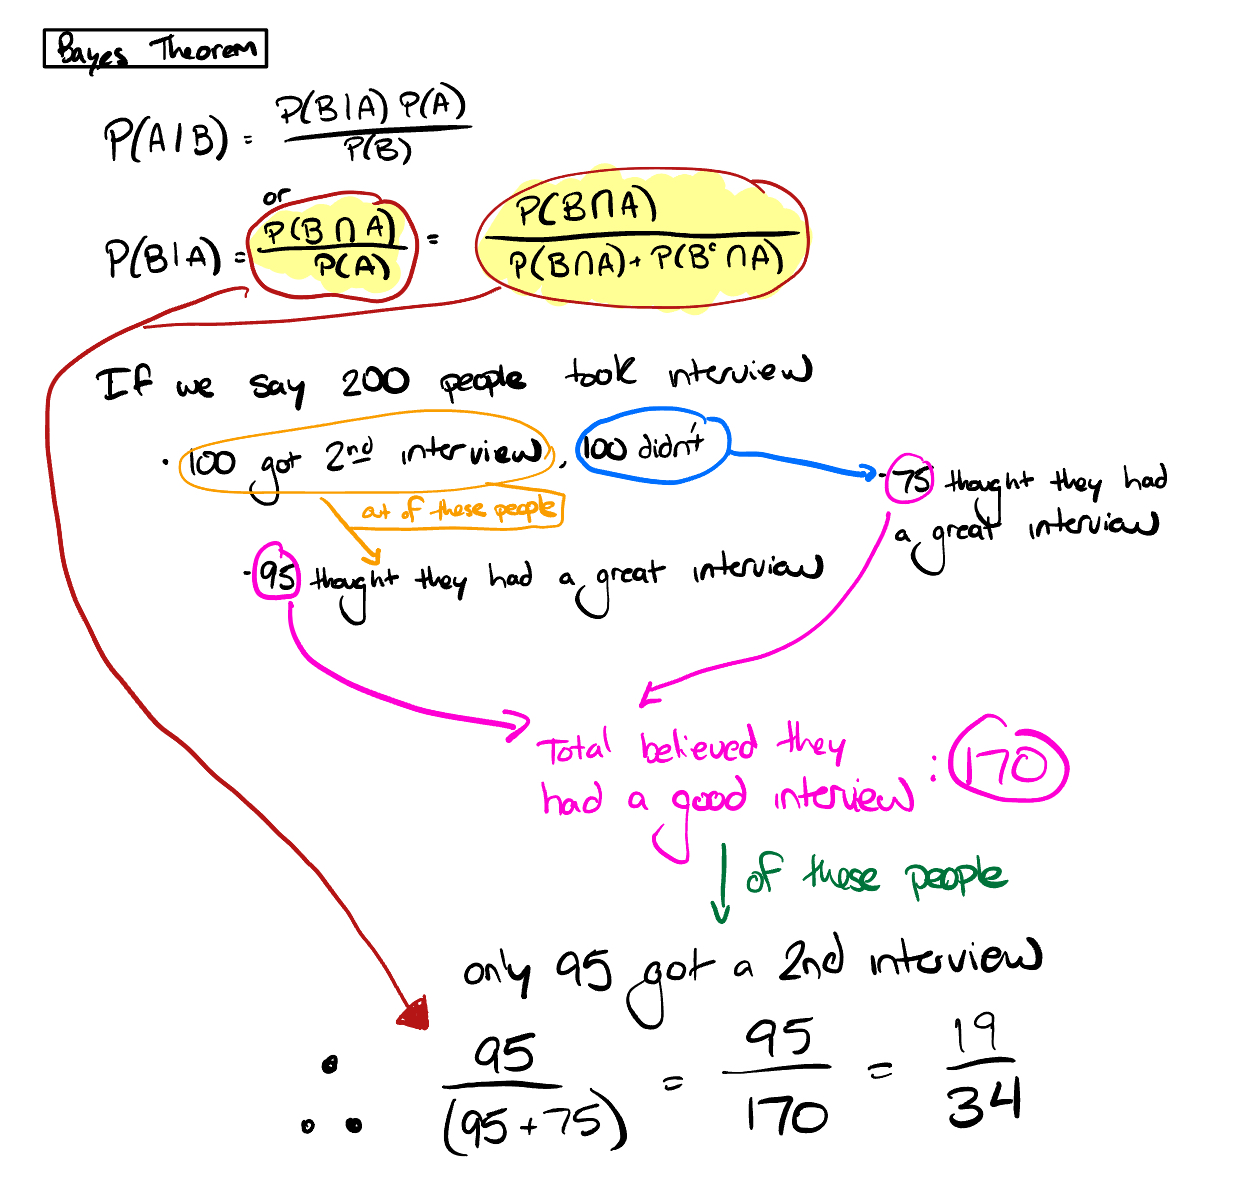 Bayes Theorem
P(A|B) = P(B|A) P(A) / P(B)
or
P(B|A) = P(B∩A) / P(A) = P(B∩A) / P(B∩A) + P(Bᶜ∩A)
If we say 200 people took interview
· 100 got 2nd interview, 100 didn't
- 75 thought they had
a great interview
out of these people
- 95 thought they had a great interview
Total believed they
had a good interview : 170
of these people
only 95 got a 2nd interview
∴ 95 / (95+75) = 95 / 170 = 19 / 34